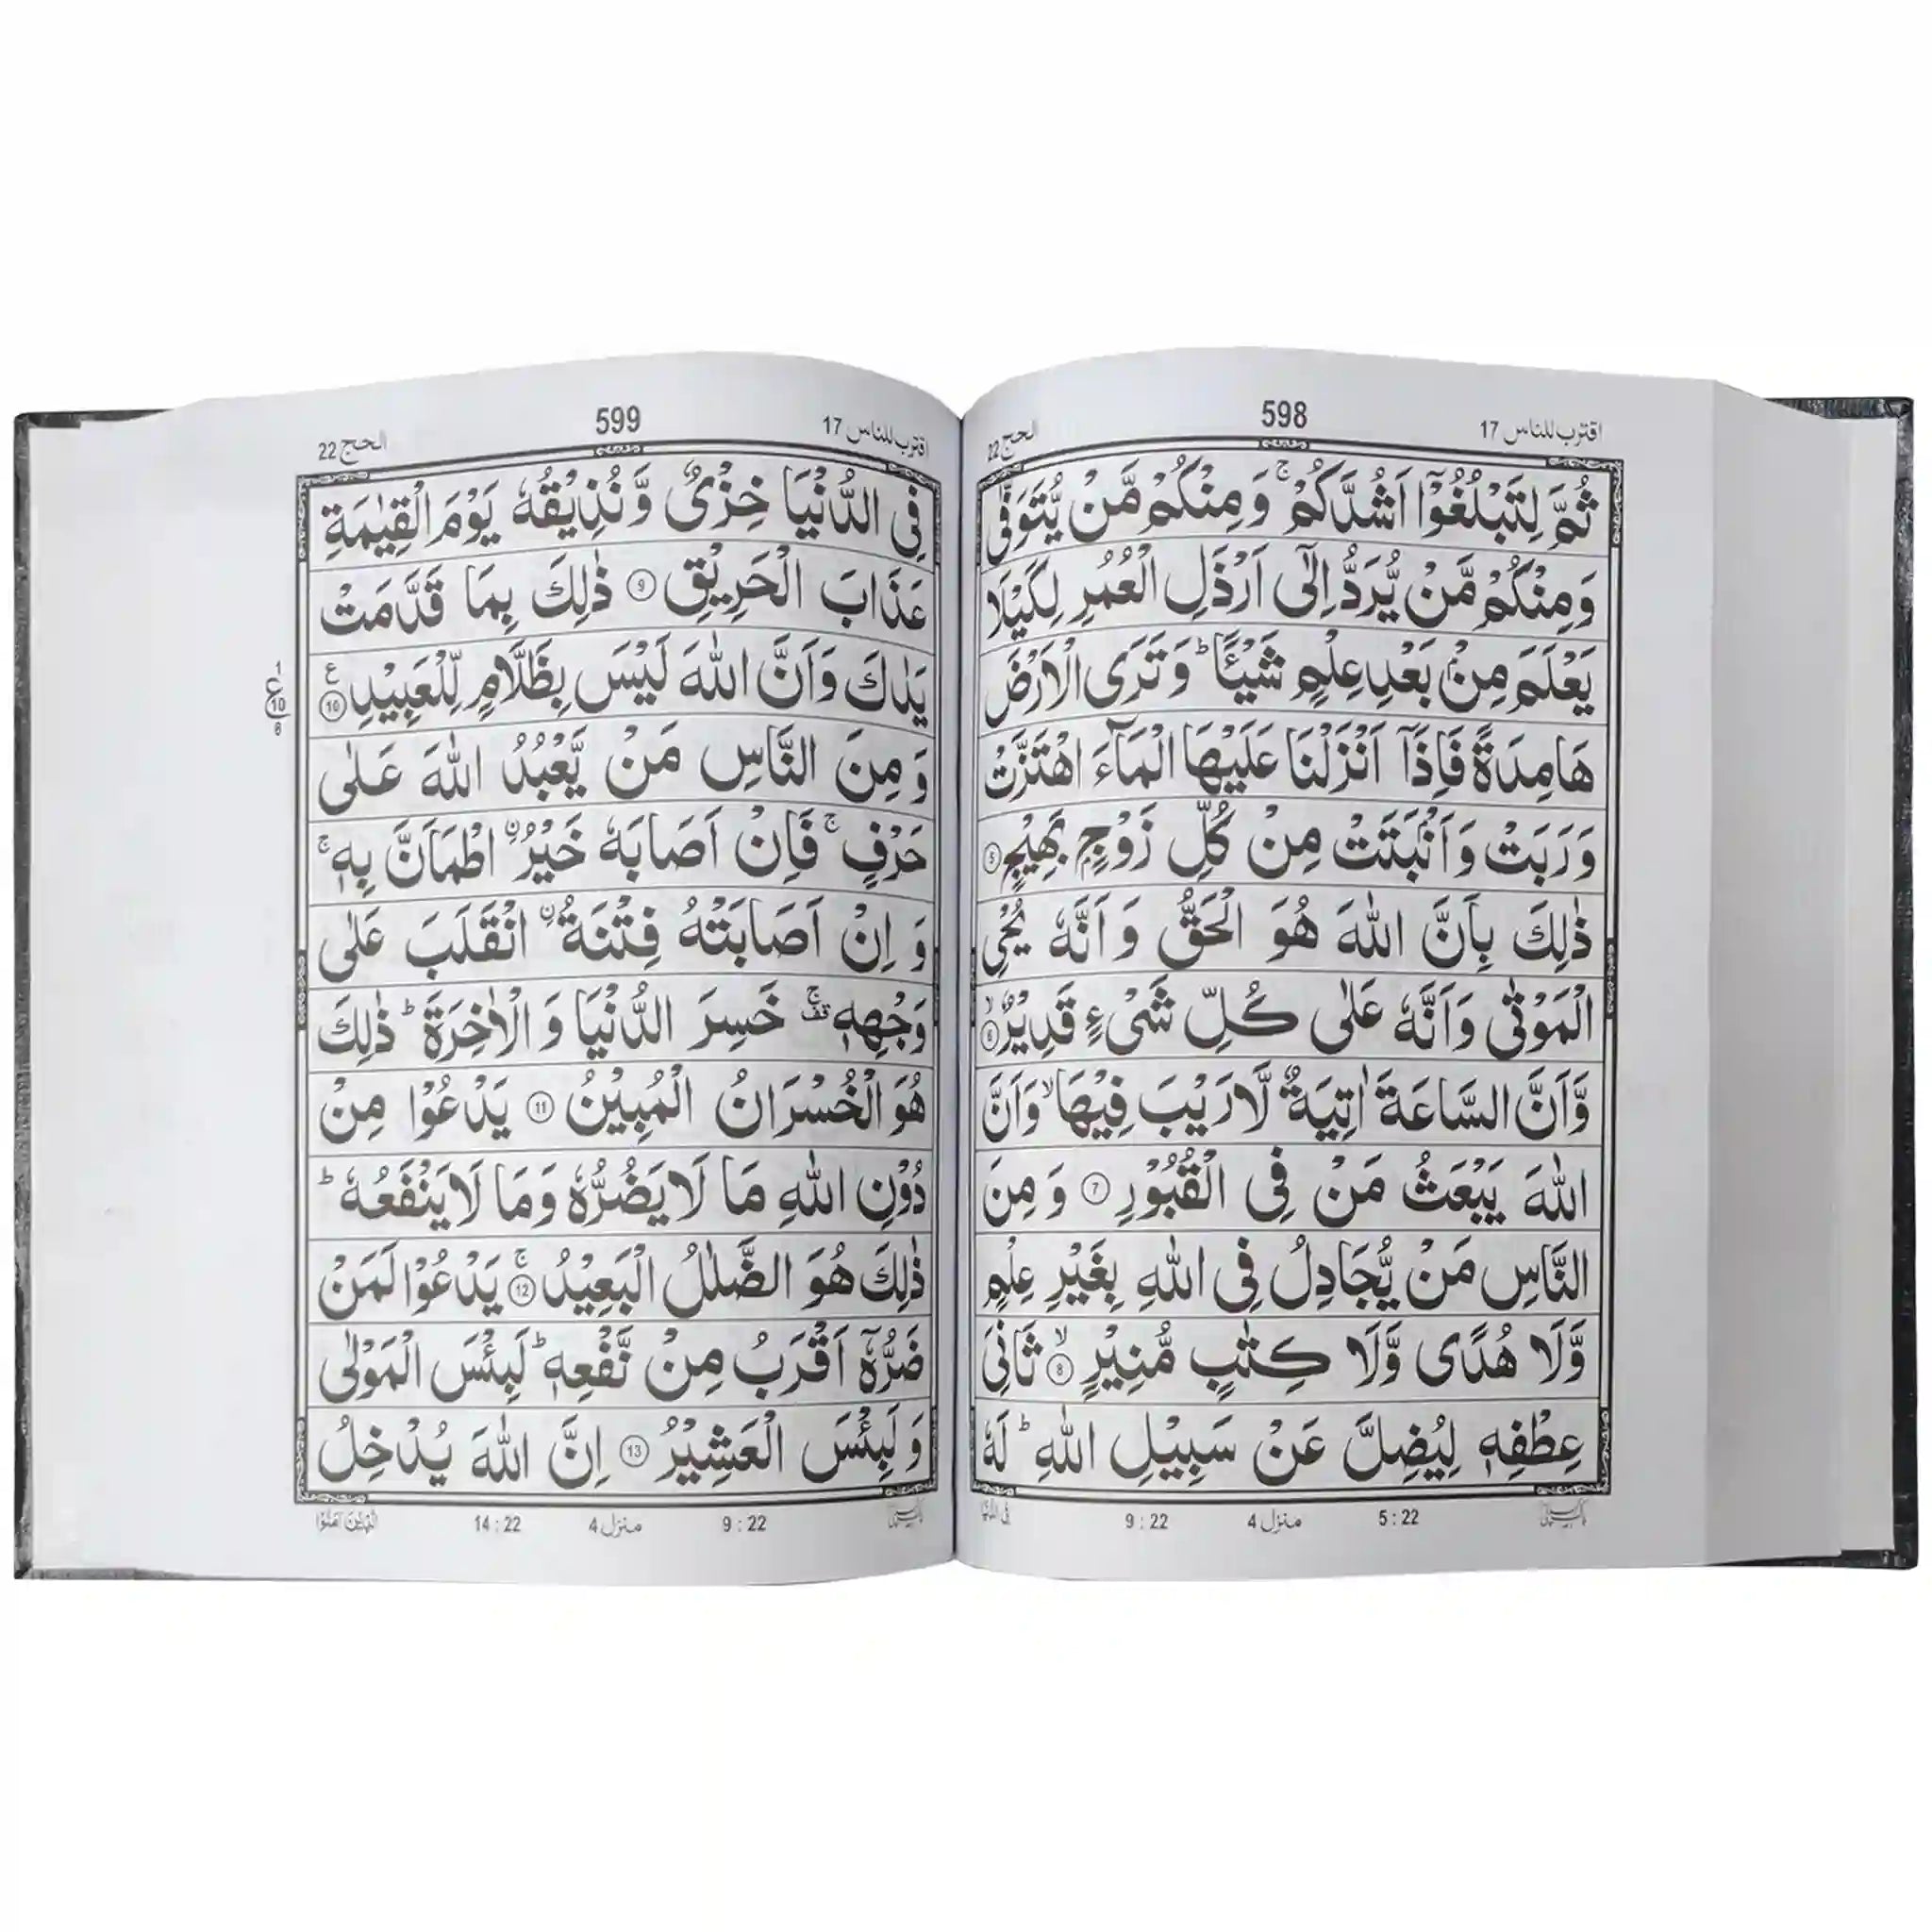 اقترب للناس 17
598
الحج 22
ثُمَّ لِتَبْلُغُوْۤا اَشُدَّكُمْ ۚ وَ مِنْكُمْ مَّنْ يُّتَوَفّٰى
وَ مِنْكُمْ مَّنْ يُّرَدُّ اِلٰۤى اَرْذَلِ الْعُمُرِ لِكَيْلَا
يَعْلَمَ مِنْۢ بَعْدِ عِلْمٍ شَيْـًٔا ؕ وَ تَرَى الْاَرْضَ
هَامِدَةً فَاِذَاۤ اَنْزَلْنَا عَلَيْهَا الْمَآءَ اهْتَزَّتْ
وَ رَبَتْ وَ اَنْۢبَتَتْ مِنْ كُلِّ زَوْجٍۭ بَهِيْجٍ 5
ذٰلِكَ بِاَنَّ اللّٰهَ هُوَ الْحَقُّ وَ اَنَّهٗ يُحْيِ
الْمَوْتٰى وَ اَنَّهٗ عَلٰى كُلِّ شَیْءٍ قَدِيْرٌ ۙ 6
وَّ اَنَّ السَّاعَةَ اٰتِيَةٌ لَّا رَيْبَ فِيْهَا ۙ وَ اَنَّ
اللّٰهَ يَبْعَثُ مَنْ فِی الْقُبُوْرِ 7 وَ مِنَ
النَّاسِ مَنْ يُّجَادِلُ فِی اللّٰهِ بِغَيْرِ عِلْمٍ
وَّ لَا هُدًی وَّ لَا كِتٰبٍ مُّنِيْرٍ ۙ 8 ثَانِیَ
عِطْفِهٖ لِيُضِلَّ عَنْ سَبِيْلِ اللّٰهِ ؕ لَهٗ
5 : 22
منزل 4
9 : 22
فِی الدُّنْيَا
اقترب للناس 17
599
الحج 22
فِی الدُّنْيَا خِزْیٌ وَّ نُذِيْقُهٗ يَوْمَ الْقِيٰمَةِ
عَذَابَ الْحَرِيْقِ 9 ذٰلِكَ بِمَا قَدَّمَتْ
يَدٰكَ وَ اَنَّ اللّٰهَ لَيْسَ بِظَلَّامٍ لِّلْعَبِيْدِ ع 10
1
ع
10
8
وَ مِنَ النَّاسِ مَنْ يَّعْبُدُ اللّٰهَ عَلٰى
حَرْفٍ ۚ فَاِنْ اَصَابَهٗ خَيْرُ ۨ اطْمَاَنَّ بِهٖ ۚ
وَ اِنْ اَصَابَتْهُ فِتْنَةُ ۨ انْقَلَبَ عَلٰى
وَجْهِهٖ ۚ قف خَسِرَ الدُّنْيَا وَ الْاٰخِرَةَ ؕ ذٰلِكَ
هُوَ الْخُسْرَانُ الْمُبِيْنُ 11 يَدْعُوْا مِنْ
دُوْنِ اللّٰهِ مَا لَا يَضُرُّهٗ وَ مَا لَا يَنْفَعُهٗ ؕ
ذٰلِكَ هُوَ الضَّلٰلُ الْبَعِيْدُ ۚ 12 يَدْعُوْا لَمَنْ
ضَرُّهٗۤ اَقْرَبُ مِنْ نَّفْعِهٖ ؕ لَبِئْسَ الْمَوْلٰى
وَ لَبِئْسَ الْعَشِيْرُ 13 اِنَّ اللّٰهَ يُدْخِلُ
9 : 22
منزل 4
14 : 22
الَّذِيْنَ اٰمَنُوْا